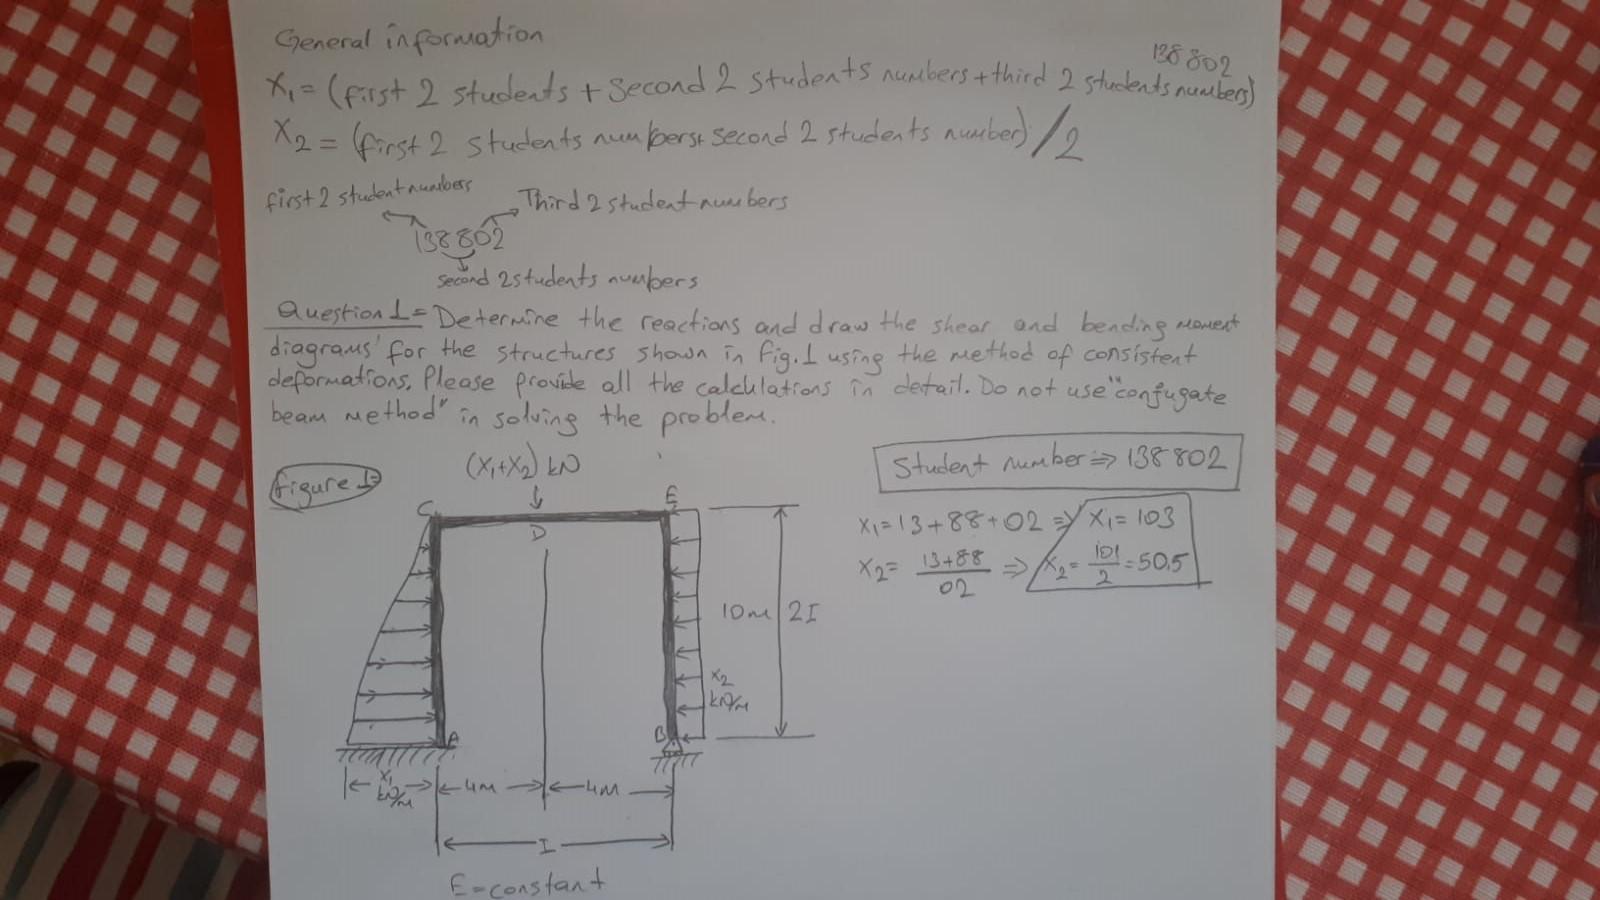 General information
138802
X₁ = (first 2 students + second 2 students numbers + third 2 students numbers)
X₂ = (first 2 students numbers+ second 2 students number) / 2
first 2 student numbers
Third 2 student numbers
138802
second 2 students numbers
Question 1 = Determine the reactions and draw the shear and bending moment
diagrams' for the structures shown in Fig. 1 using the method of consistent
deformations. Please provide all the calculations in detail. Do not use "conjugate
beam method" in solving the problem.
Figure 1=
(X₁+X₂) kN
Student number => 138802
X₁ = 13+88+02 => X₁ = 103
X₂ = 13+88 / 02 => X₂ = 101/2 = 50.5
C
E
D
10m
2I
X₂
kN/m
A
B
X₁
kN/m
4m
4m
I
E = constant